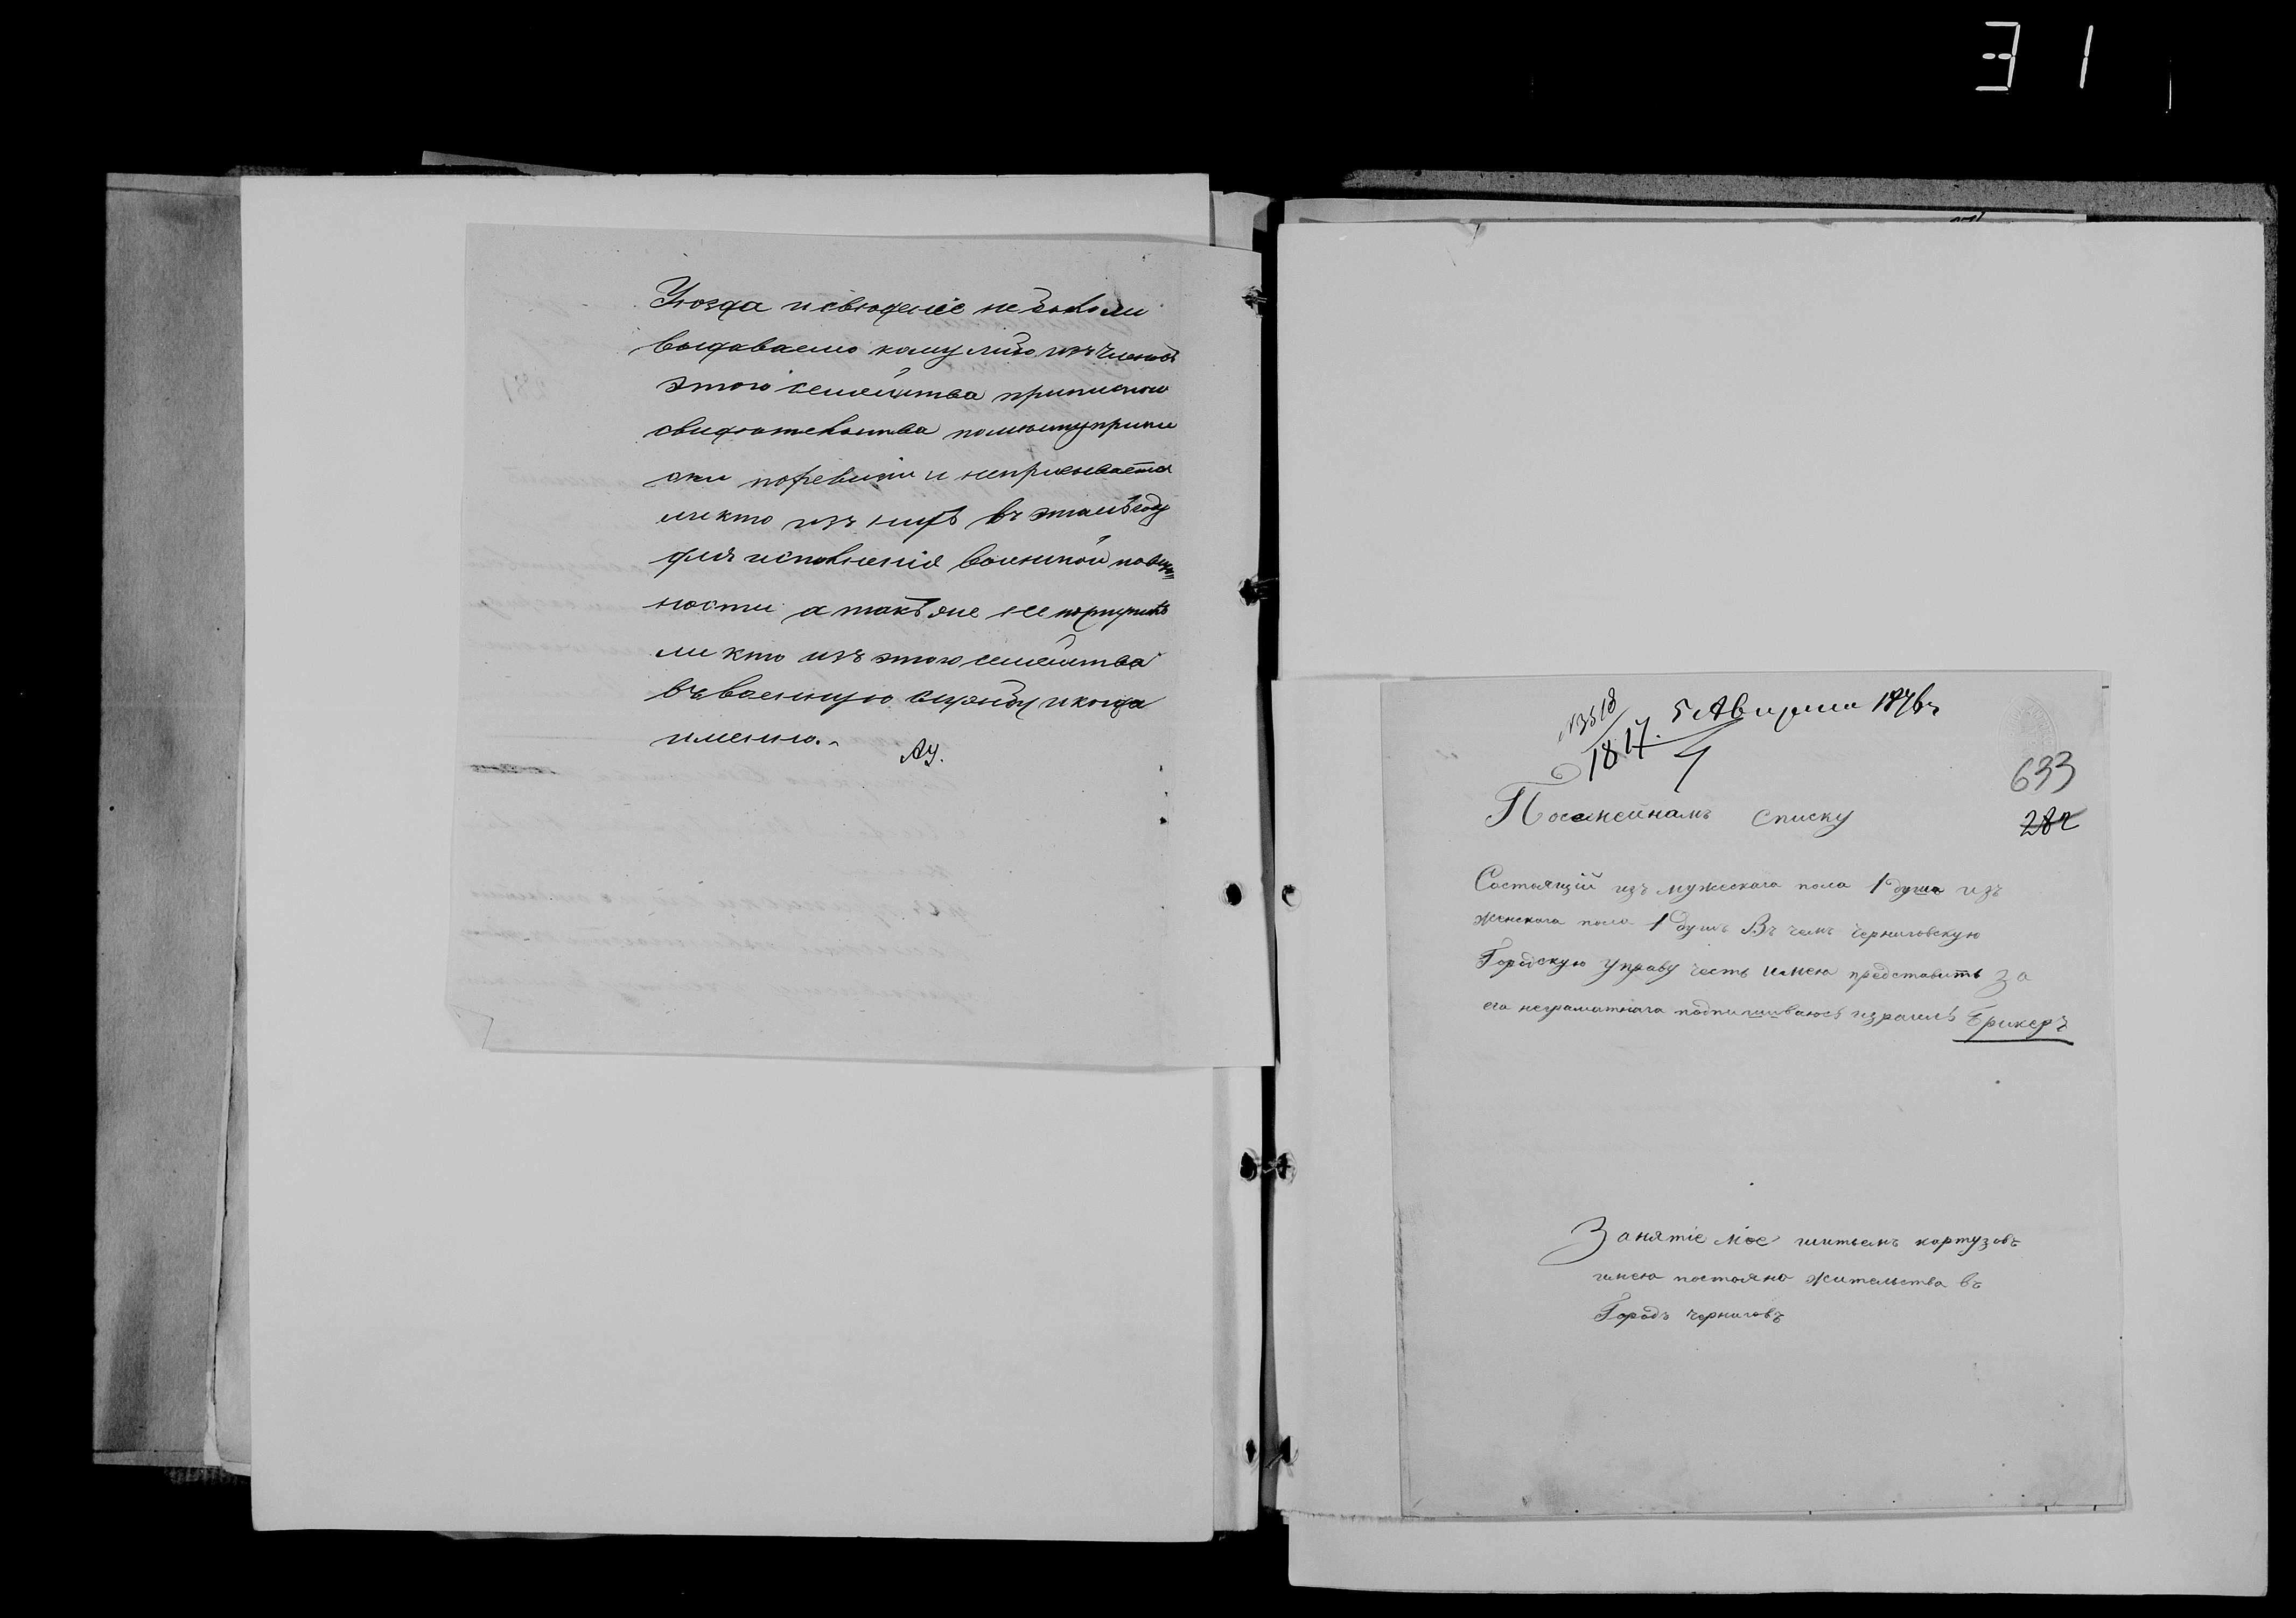 31
Уѣзда и свѣденіе не было ли
выдаваемо кому либо изъ членовъ
этого семейства приписного
свидѣтельства по мѣсту припи
ски поревизіи и непризывается
ли кто изъ нихъ въ этомъ году
для исполненія воинской повин=
ности а такъ же не поступилъ
ли кто изъ этого семейства
въ военную службу и когда
именно.
5 Августа 1876 г
13518
1817
633
282
Посемейнамъ списку
Састаящій изъ мужескага пола 1 душа изъ
женскага пола 1 душъ Въ чемъ Черниговскую
Городскую управу честь имею представить за
ега неграматнага подпишиваюсь израиль Брикеръ
Занятіе мое шитьемъ картузовъ
имею постояна жительства въ
Городъ Чорниговъ